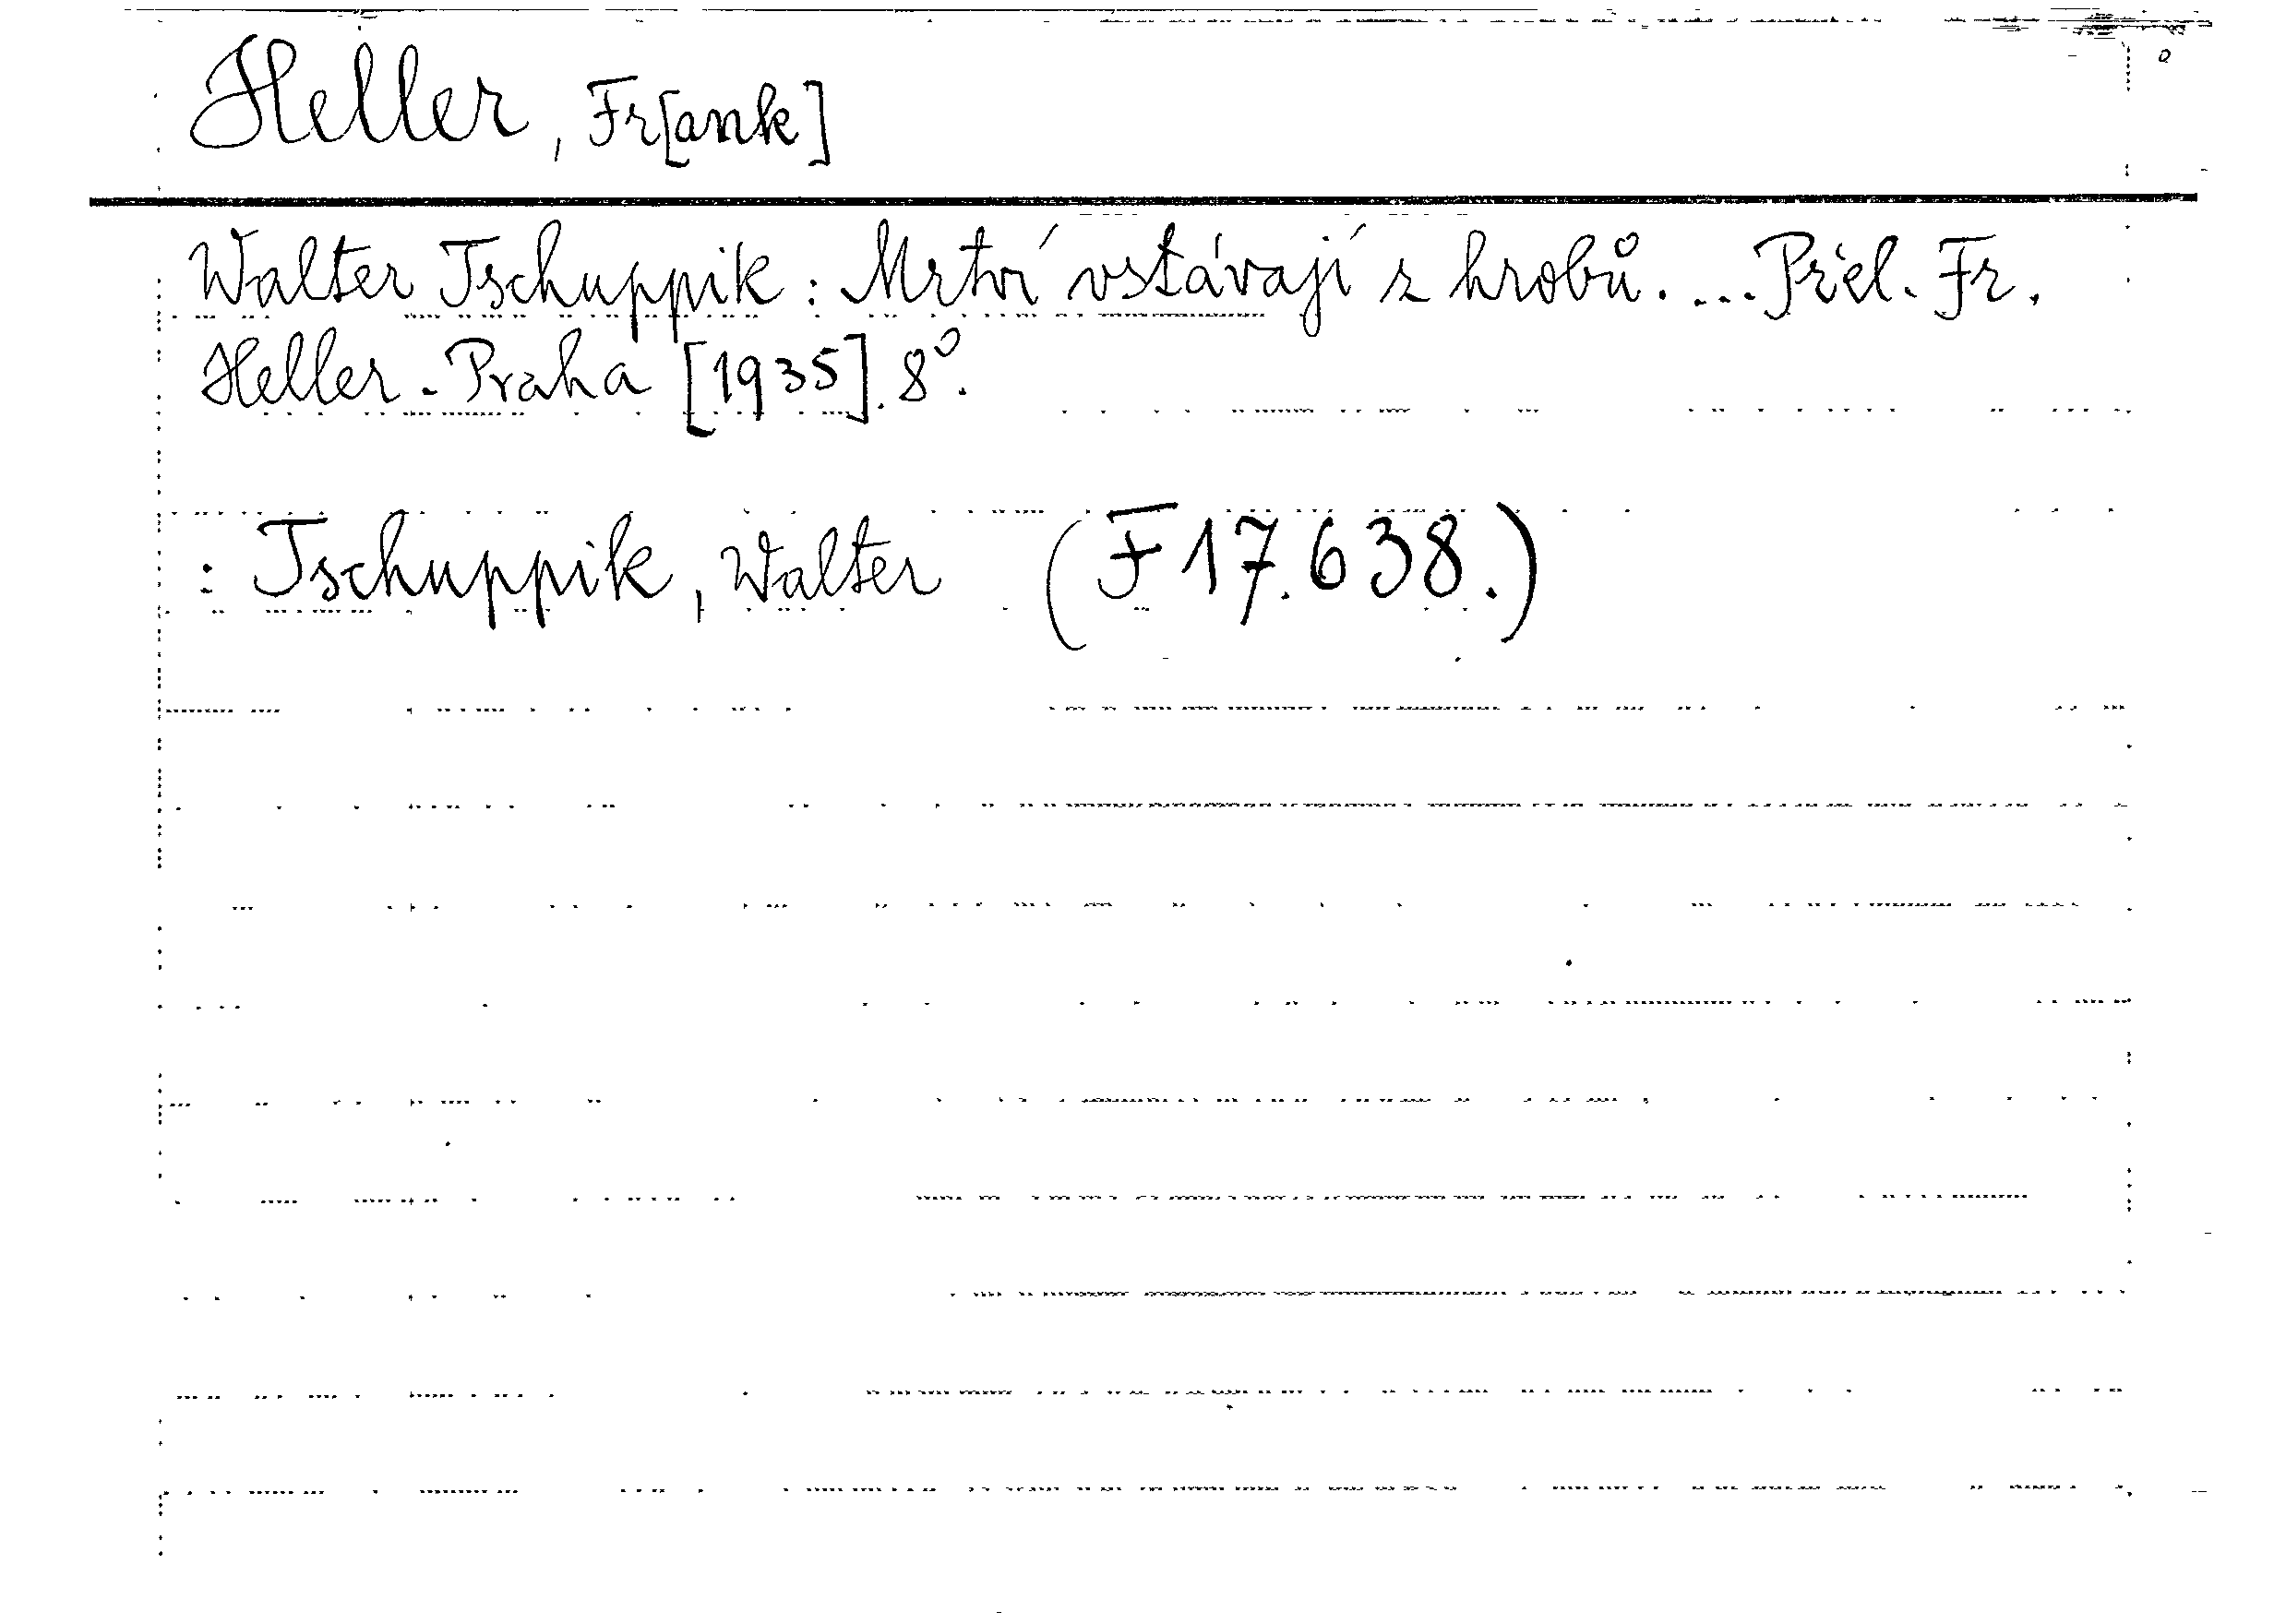 Heller, Fr[ank]
Walter Tschuppik: Mrtví vstávají z hrobů. ... Přel. Fr.
Heller. Praha [1935]. 8°.
: Tschuppik, Walter (F 17.638.)